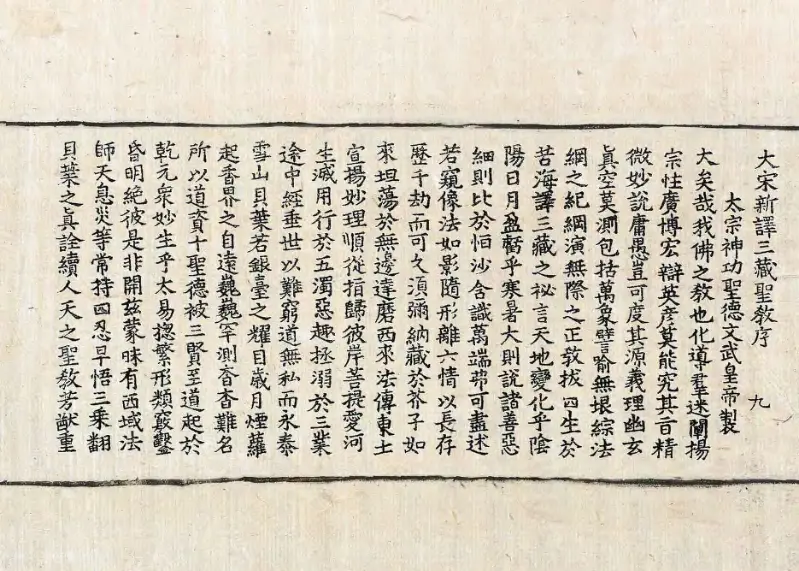 大宋新譯三藏聖教序 九
太宗神功聖德文武皇帝製
大矣哉我佛之教也化導羣迷闡揚
宗性廣博宏辯英彥莫能究其旨精
微妙說庸愚豈可度其源義理幽玄
眞空莫測包括萬象譬喻無垠綜法
網之紀綱演無際之正教拔四生於
苦海譯三藏之祕言天地變化乎陰
陽日月盈虧乎寒暑大則說諸善惡
細則比於恒沙含識萬端弗可盡述
若窺像法如影隨形離六情以長存
歷千劫而可久須彌納藏於芥子如
來坦蕩於無邊達磨西來法傳東土
宣揚妙理順從指歸彼岸菩提愛河
生滅用行於五濁惡趣拯溺於三業
途中經垂世以難窮道無私而永泰
雪山貝葉若銀臺之耀目歲月煙蘿
起香界之自遠巍巍罕測杳杳難名
所以道資十聖德被三賢至道起於
乾元衆妙生乎太易揔繁形類竅鑿
昏明絕彼是非開茲蒙昧有西域法
師天息災等常持四忍早悟三乘翻
貝葉之眞詮續人天之聖教芳猷重